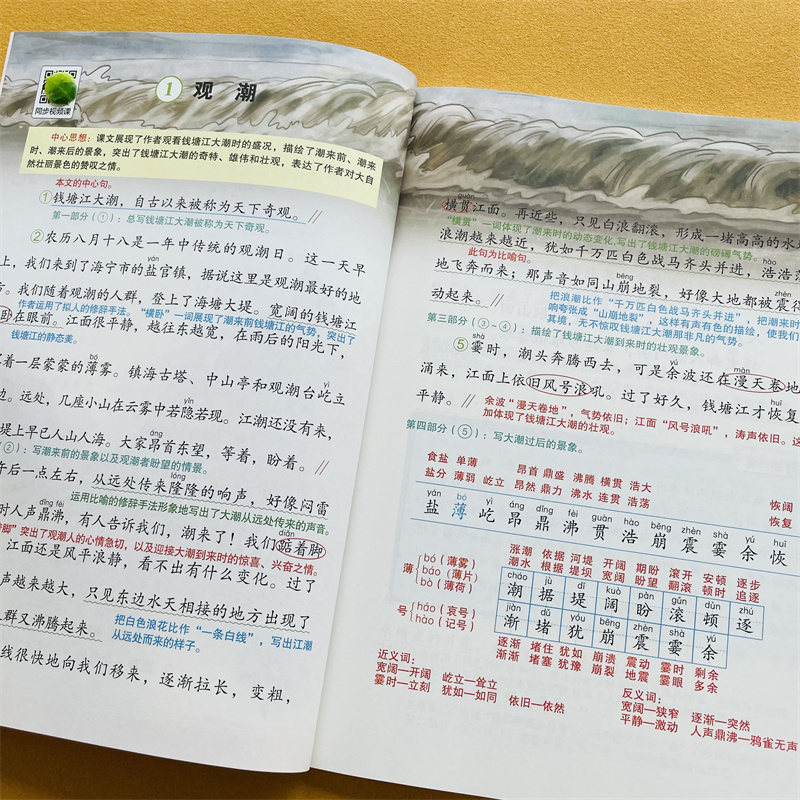 同步视频课
1 观 潮
中心思想：课文展现了作者观看钱塘江大潮时的盛况，描绘了潮来前、潮来
时、潮来后的景象，突出了钱塘江大潮的奇特、雄伟和壮观，表达了作者对大自
然壮丽景色的赞叹之情。
本文的中心句。
①钱塘江大潮，自古以来被称为天下奇观。//
第一部分（①）：总写钱塘江大潮被称为天下奇观。
②农历八月十八是一年中传统的观潮日。这一天早
上，我们来到了海宁市的盐官镇，据说这里是观潮最好的地
方。我们随着观潮的人群，登上了海塘大堤。宽阔的钱塘江
作者运用了拟人的修辞手法。“横卧”一词展现了潮来前钱塘江的气势，突出了
卧在眼前。江面很平静，越往东越宽，在雨后的阳光下，
钱塘江的静态美。
bó
着一层蒙蒙的薄雾。镇海古塔、中山亭和观潮台屹立
yì
边。远处，几座小山在云雾中若隐若现。江潮还没有来，
yǐn
堤上早已人山人海。大家昂首东望，等着，盼着。//
áng
（②）：写潮来前的景象以及观潮者盼望的情景。
午后一点左右，从远处传来隆隆的响声，好像闷雷
lóng
运用比喻的修辞手法形象地写出了大潮从远处传来的声音。
dǐng fèi
时人声鼎沸，有人告诉我们，潮来了！我们踮着脚
diǎn
脚”突出了观潮人的心情急切，以及迎接大潮到来时的惊喜、兴奋之情。
江面还是风平浪静，看不出有什么变化。过了
声越来越大，只见东边水天相接的地方出现了
人群又沸腾起来。
把白色浪花比作“一条白线”，写出江潮
从远处而来的样子。
线很快地向我们移来，逐渐拉长，变粗，
guàn
横贯江面。再近些，只见白浪翻滚，形成一堵高高的水
“横贯”一词体现了潮来时的动态变化，写出了钱塘江大潮的磅礴气势。
hào
浪潮越来越近，犹如千万匹白色战马齐头并进，浩浩荡
此句为比喻句。
bēng
地飞奔而来；那声音如同山崩地裂，好像大地都被震得
动起来。//
把浪潮比作“千万匹白色战马齐头并进”，把潮来时
响夸张成“山崩地裂”，这样有声有色的描绘，使我们
其境，无不惊叹钱塘江大潮那非凡的气势。
第三部分（③~④）：描绘了钱塘江大潮到来时的壮观景象。
shà yú màn
⑤霎时，潮头奔腾西去，可是余波还在漫天卷地
涌来，江面上依旧风号浪吼。过了好久，钱塘江才恢复
háo hǒu huī
平静。//
余波“漫天卷地”，气势依旧；江面“风号浪吼”，涛声依旧。这
加体现了钱塘江大潮的壮观。
第四部分（⑤）：写大潮过后的景象。
食盐 单薄 昂首 鼎盛 沸腾 横贯 浩大 恢阔
盐分 薄弱 屹立 昂然 鼎力 沸水 连贯 浩荡 恢复
yán bó yì áng dǐng fèi guàn hào bēng zhèn shà yú huī
盐 薄 屹 昂 鼎 沸 贯 浩 崩 震 霎 余 恢
薄 bó（薄雾） báo（薄片） bò（薄荷）
号 háo（哀号） hào（记号）
涨潮 依据 河堤 开阔 期盼 滚开 安顿 逐步
潮水 根据 堤坝 宽阔 盼望 翻滚 顿时 追逐
cháo jù dī kuò pàn gǔn dùn zhú
潮 据 堤 阔 盼 滚 顿 逐
jiàn dǔ yóu bēng zhèn shà yú
渐 堵 犹 崩 震 霎 余
逐渐 堵住 犹如 崩溃 震动 霎时 剩余
渐渐 堵塞 犹豫 崩裂 地震 霎眼 多余
近义词：
宽阔—开阔 屹立—耸立
霎时—立刻 犹如—如同 依旧—依然
反义词：
宽阔—狭窄 逐渐—突然
平静—激动 人声鼎沸—鸦雀无声